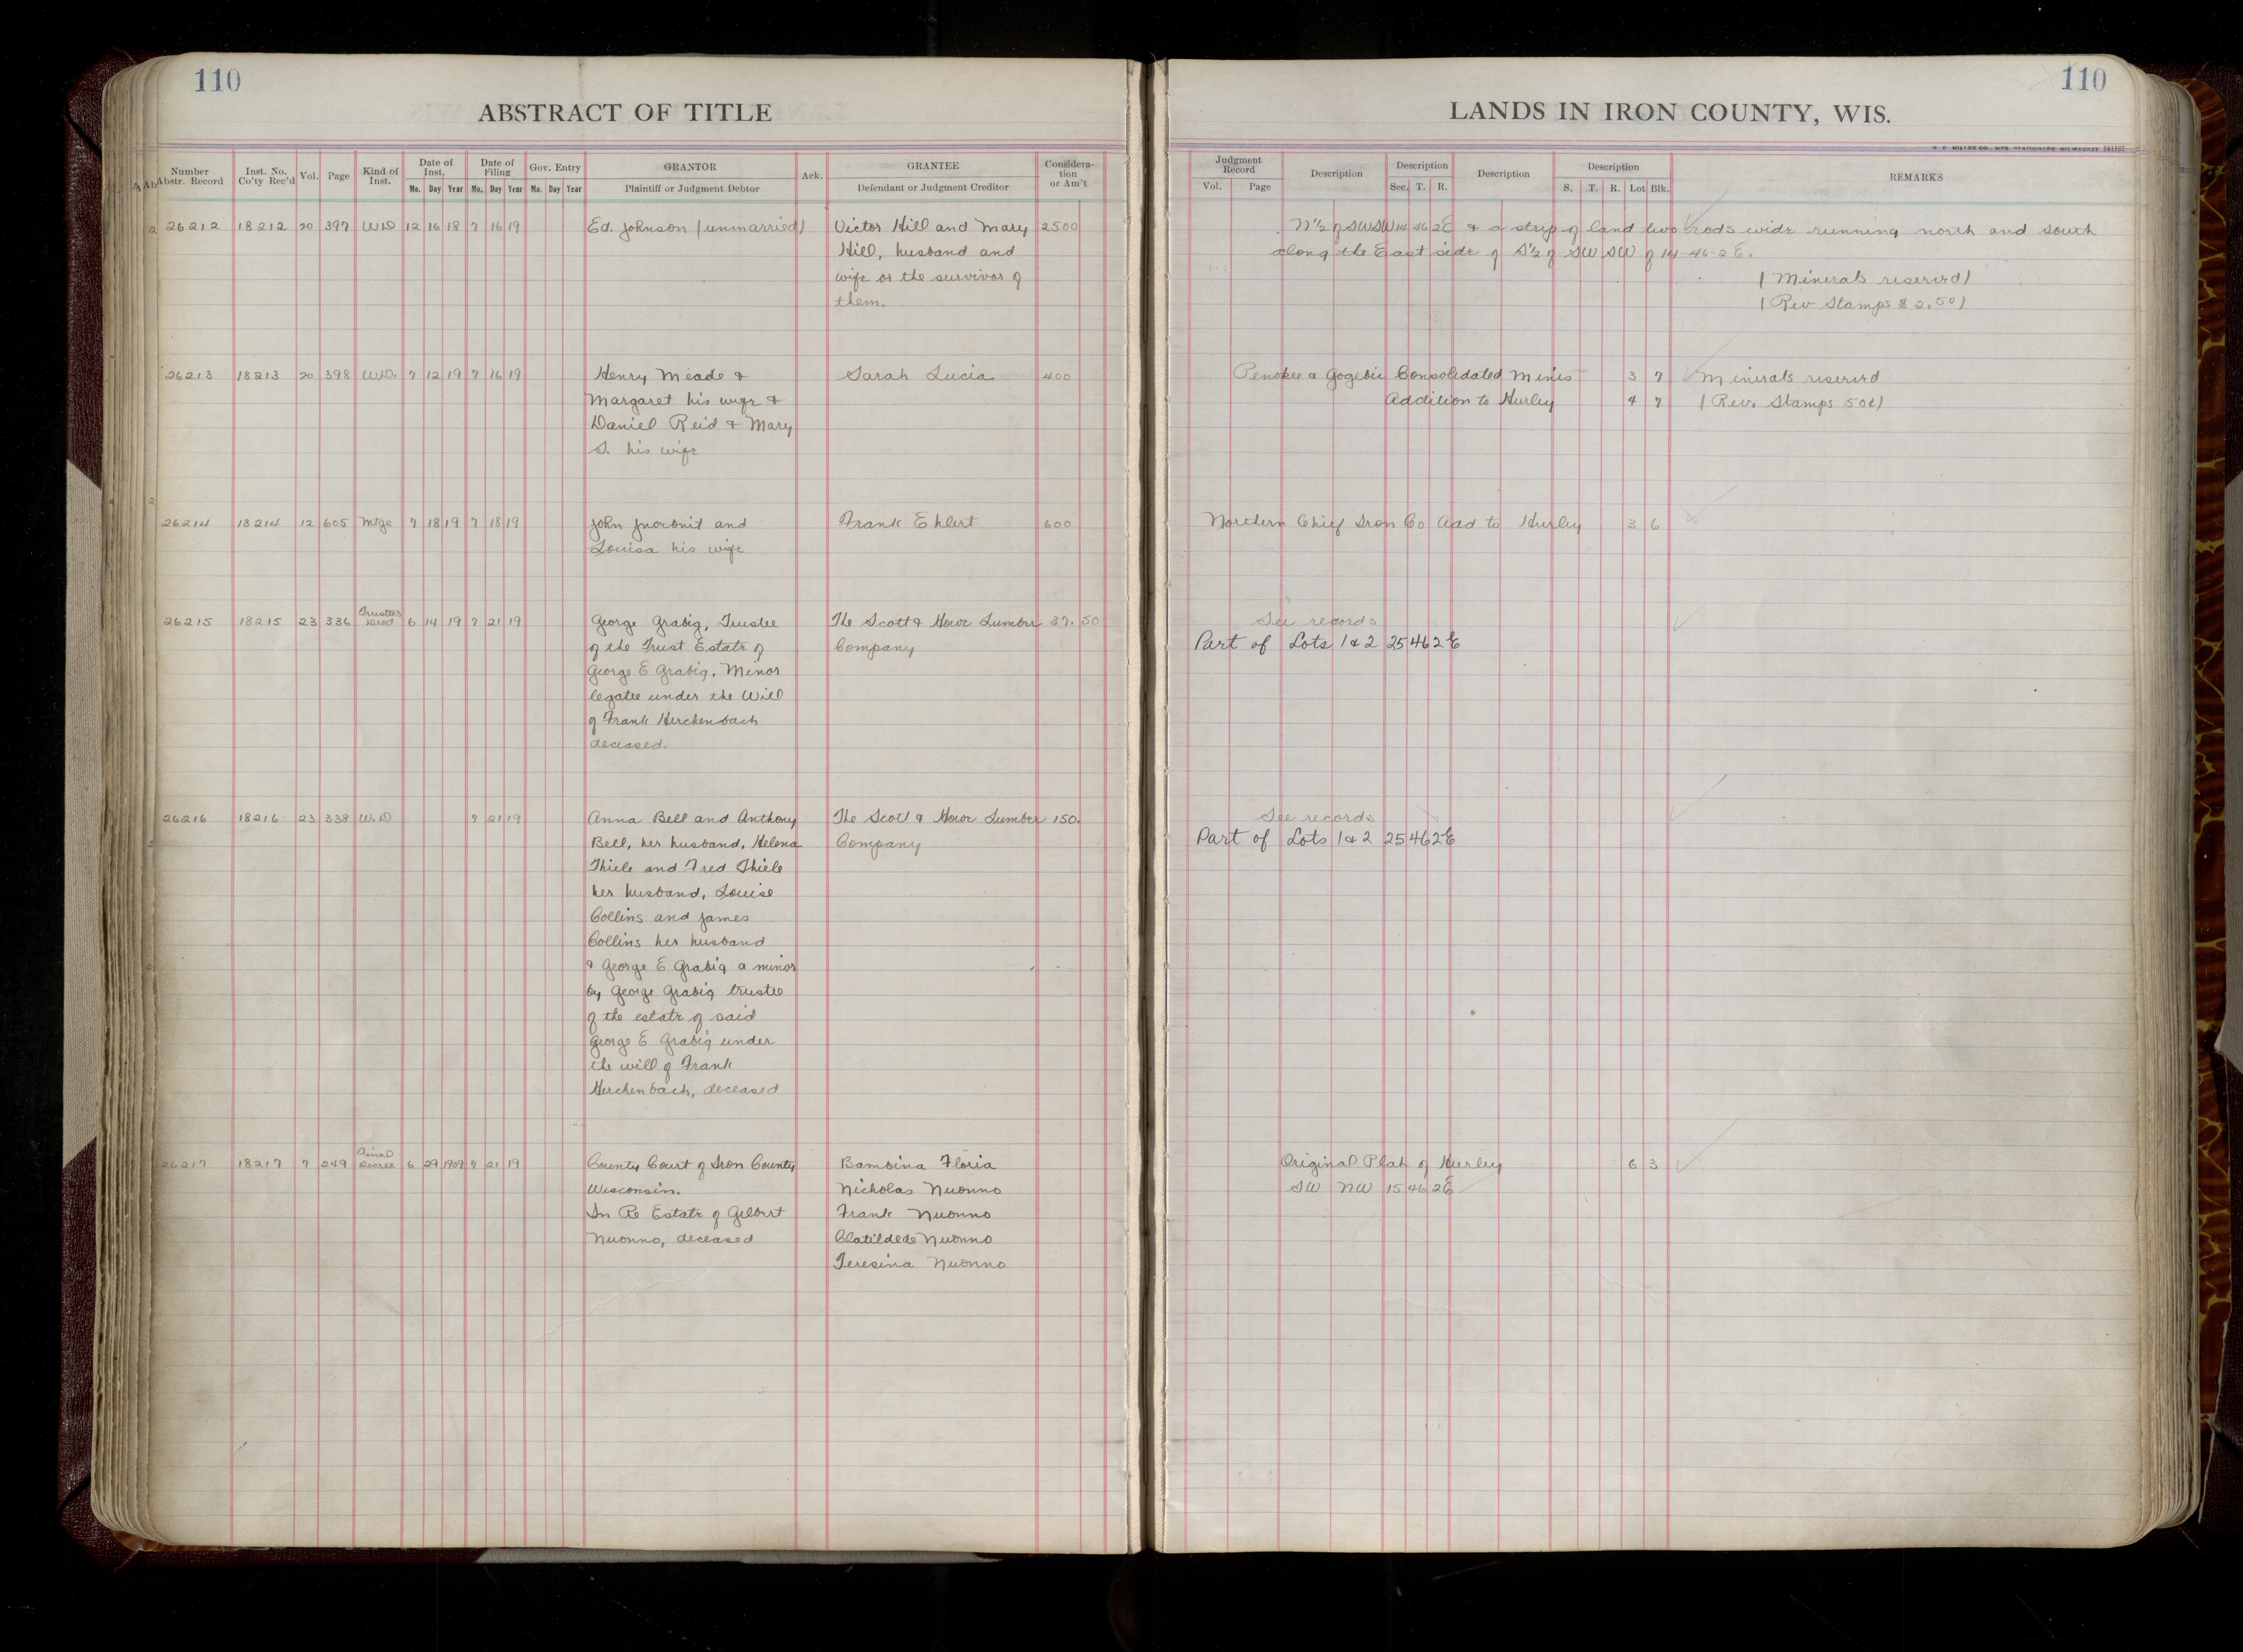 110
ABSTRACT OF TITLE
Number Abstr. Record Inst. No. Co'ty Rec'd Vol. Page Kind of Inst. Date of Inst. Mo. Day Year Date of Filing Mo. Day Year Gov. Entry Mo. Day Year GRANTOR Plaintiff or Judgment Debtor Ack. GRANTEE Defendant or Judgment Creditor Considera-tion or Am't
26212 18212 20 397 W.D 12 16 18 7 16 19 Ed. Johnson (unmarried) Victor Hill and Mary 2500
Hill, husband and
wife or the survivor of
them.
26213 18213 20 398 W.D. 7 12 19 7 16 19 Henry Meade & Sarah Lucia 400
Margaret his wife &
Daniel Reid & Mary
S. his wife
26214 18214 12 605 Mtge 7 18 19 7 18 19 John and Frank Ehlert 600
Louisa his wife
26215 18215 23 336 Trustees Deed 6 14 19 7 21 19 George Grabig, Trustee The Scott & Howe Lumber 37.50
of the Trust Estate of Company
George E Grabig, Minor
legatee under the Will
of Frank Herchenbach
deceased.
26216 18216 23 338 W.D 7 21 19 Anna Bell and Anthony The Scott & Howe Lumber 150.
Bell, her husband, Helena Company
Thiele and Fred Thiele
her husband, Louise
Collins and James
Collins her husband
& George E Grabig a minor
by George Grabig trustee
of the estate of said
George E Grabig under
the will of Frank
Herchenbach, deceased
26217 18217 7 249 Final Decree 6 29 1909 7 21 19 County Court of Iron County Bambina Floria
Wisconsin. Nicholas Nuonno
In Re Estate of Gilbert Frank Nuonno
Nuonno, deceased Clatildede Nuonno
Teresina Nuonno
110
LANDS IN IRON COUNTY, WIS.
H. C. MILLER CO., MFG. STATIONERS MILWAUKEE
Judgment Record Vol. Page Description Description Sec. T. R. Description Description S. T. R. Lot Blk. REMARKS
N½ of SW SW 14 46 2E & a strip of land two rods wide running north and south
along the East side of S½ of SW SW of 14-46-2E.
(Minerals reserved)
(Rev Stamps $2.50)
Penokee & Gogebic Consolidated Mines 3 7 Minerals reserved
Addition to Hurley 4 7 (Rev. Stamps 50¢)
Northern Chief Iron Co Add to Hurley 3 6
See records
Part of Lots 1 & 2 25 46 2E
See records
Part of Lots 1 & 2 25 46 2E
Original Plat of Hurley 6 3
SW NW 15 46 2E